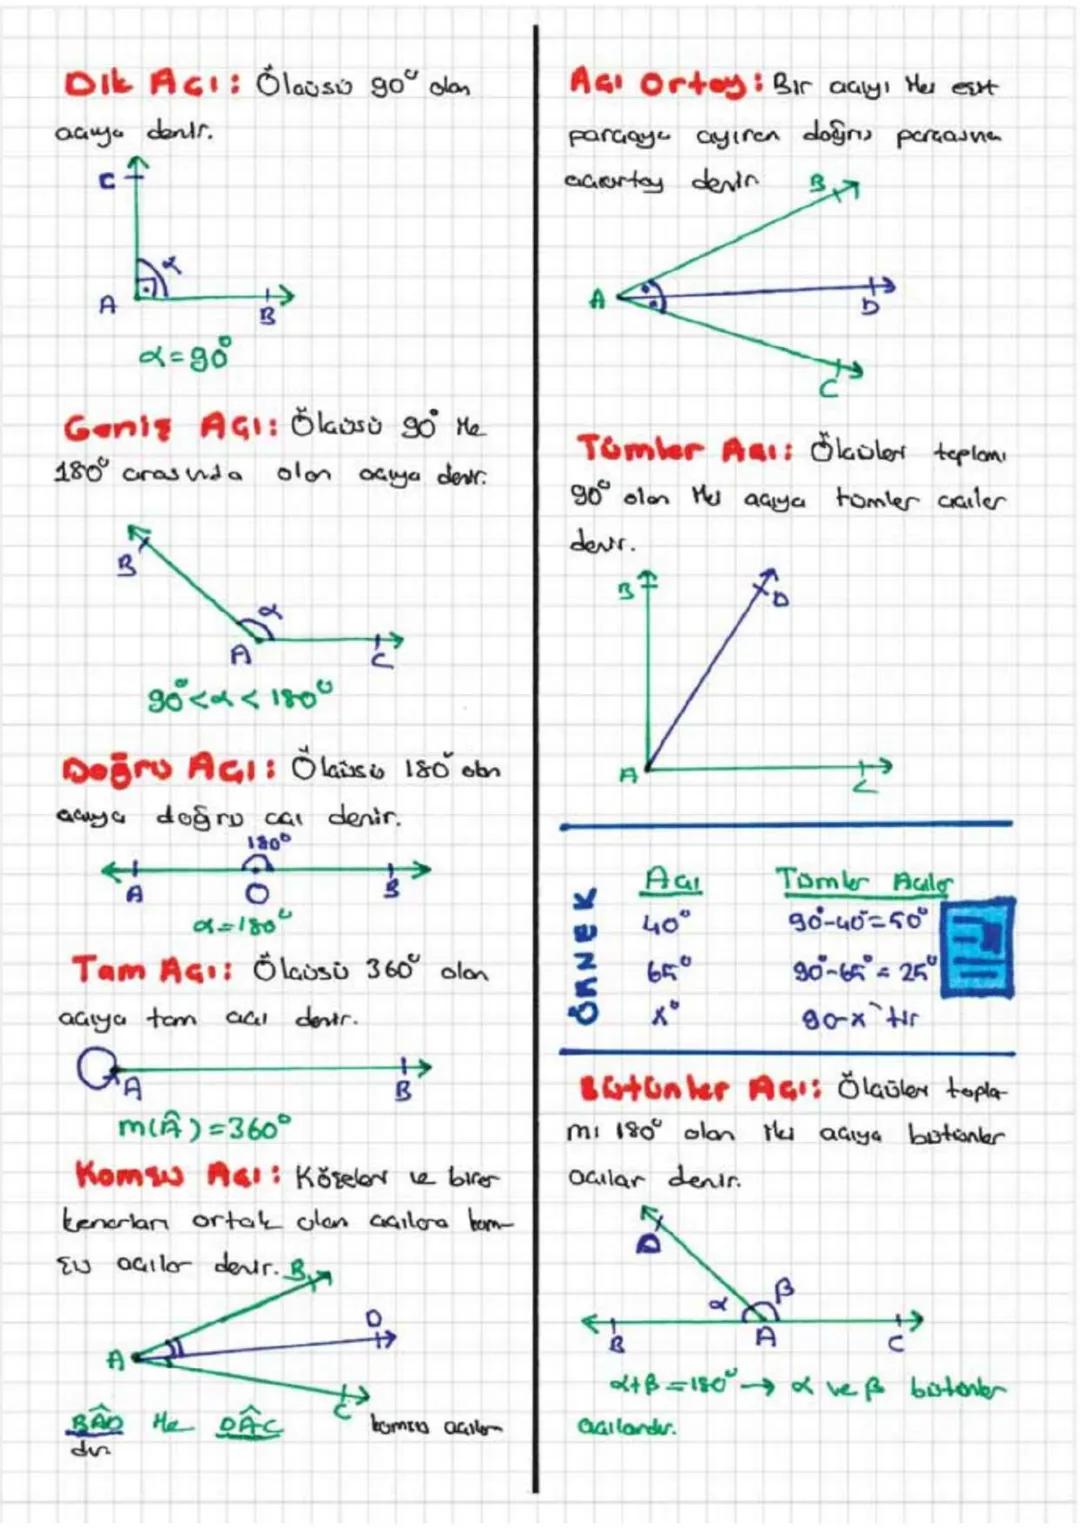 Dik Açı: Ölçüsü 90° olan
açıya denir.
C
α
A
B
α=90°
Geniş Açı: Ölçüsü 90° ile
180° arasında olan açıya denir.
B
α
A
C
90°<α<180°
Doğru Açı: Ölçüsü 180° olan
açıya doğru açı denir.
180°
A
O
B
α=180°
Tam Açı: Ölçüsü 360° olan
açıya tam açı denir.
A
B
m(Â)=360°
Komşu Açı: Köşeleri ve birer
kenarları ortak olan açılara kom-
şu açılar denir.
B
D
A
C
BÂD ile DÂC komşu açılar
dır
Açı Ortay: Bir açıyı iki eşit
parçaya ayıran doğru parçasına
açıortay denir
B
A
D
C
Tümler Açı: Ölçüleri toplamı
90° olan iki açıya tümler açılar
denir.
B
D
A
C
ÖRNEK
Açı Tümler Açılar
40° 90°-40°=50°
65° 90°-65°=25°
x° 90-x`tir
Bütünler Açı: Ölçüleri topla-
mı 180° olan iki açıya bütünler
açılar denir.
D
α β
B
A
C
α+β=180° → α ve β bütünler
açılardır.